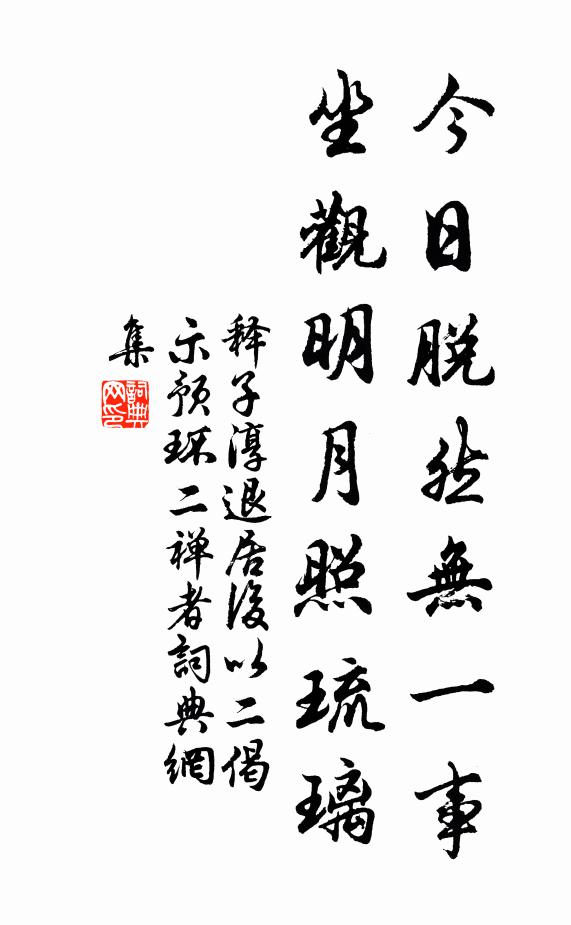 今日脱然無一事
坐觀明月照琉璃
释子淳退居後以二偈
示預环二禅者詞典網
集
詞典網印